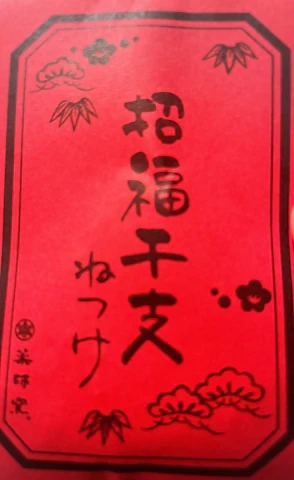 招福干支
ねつけ
薬師窯